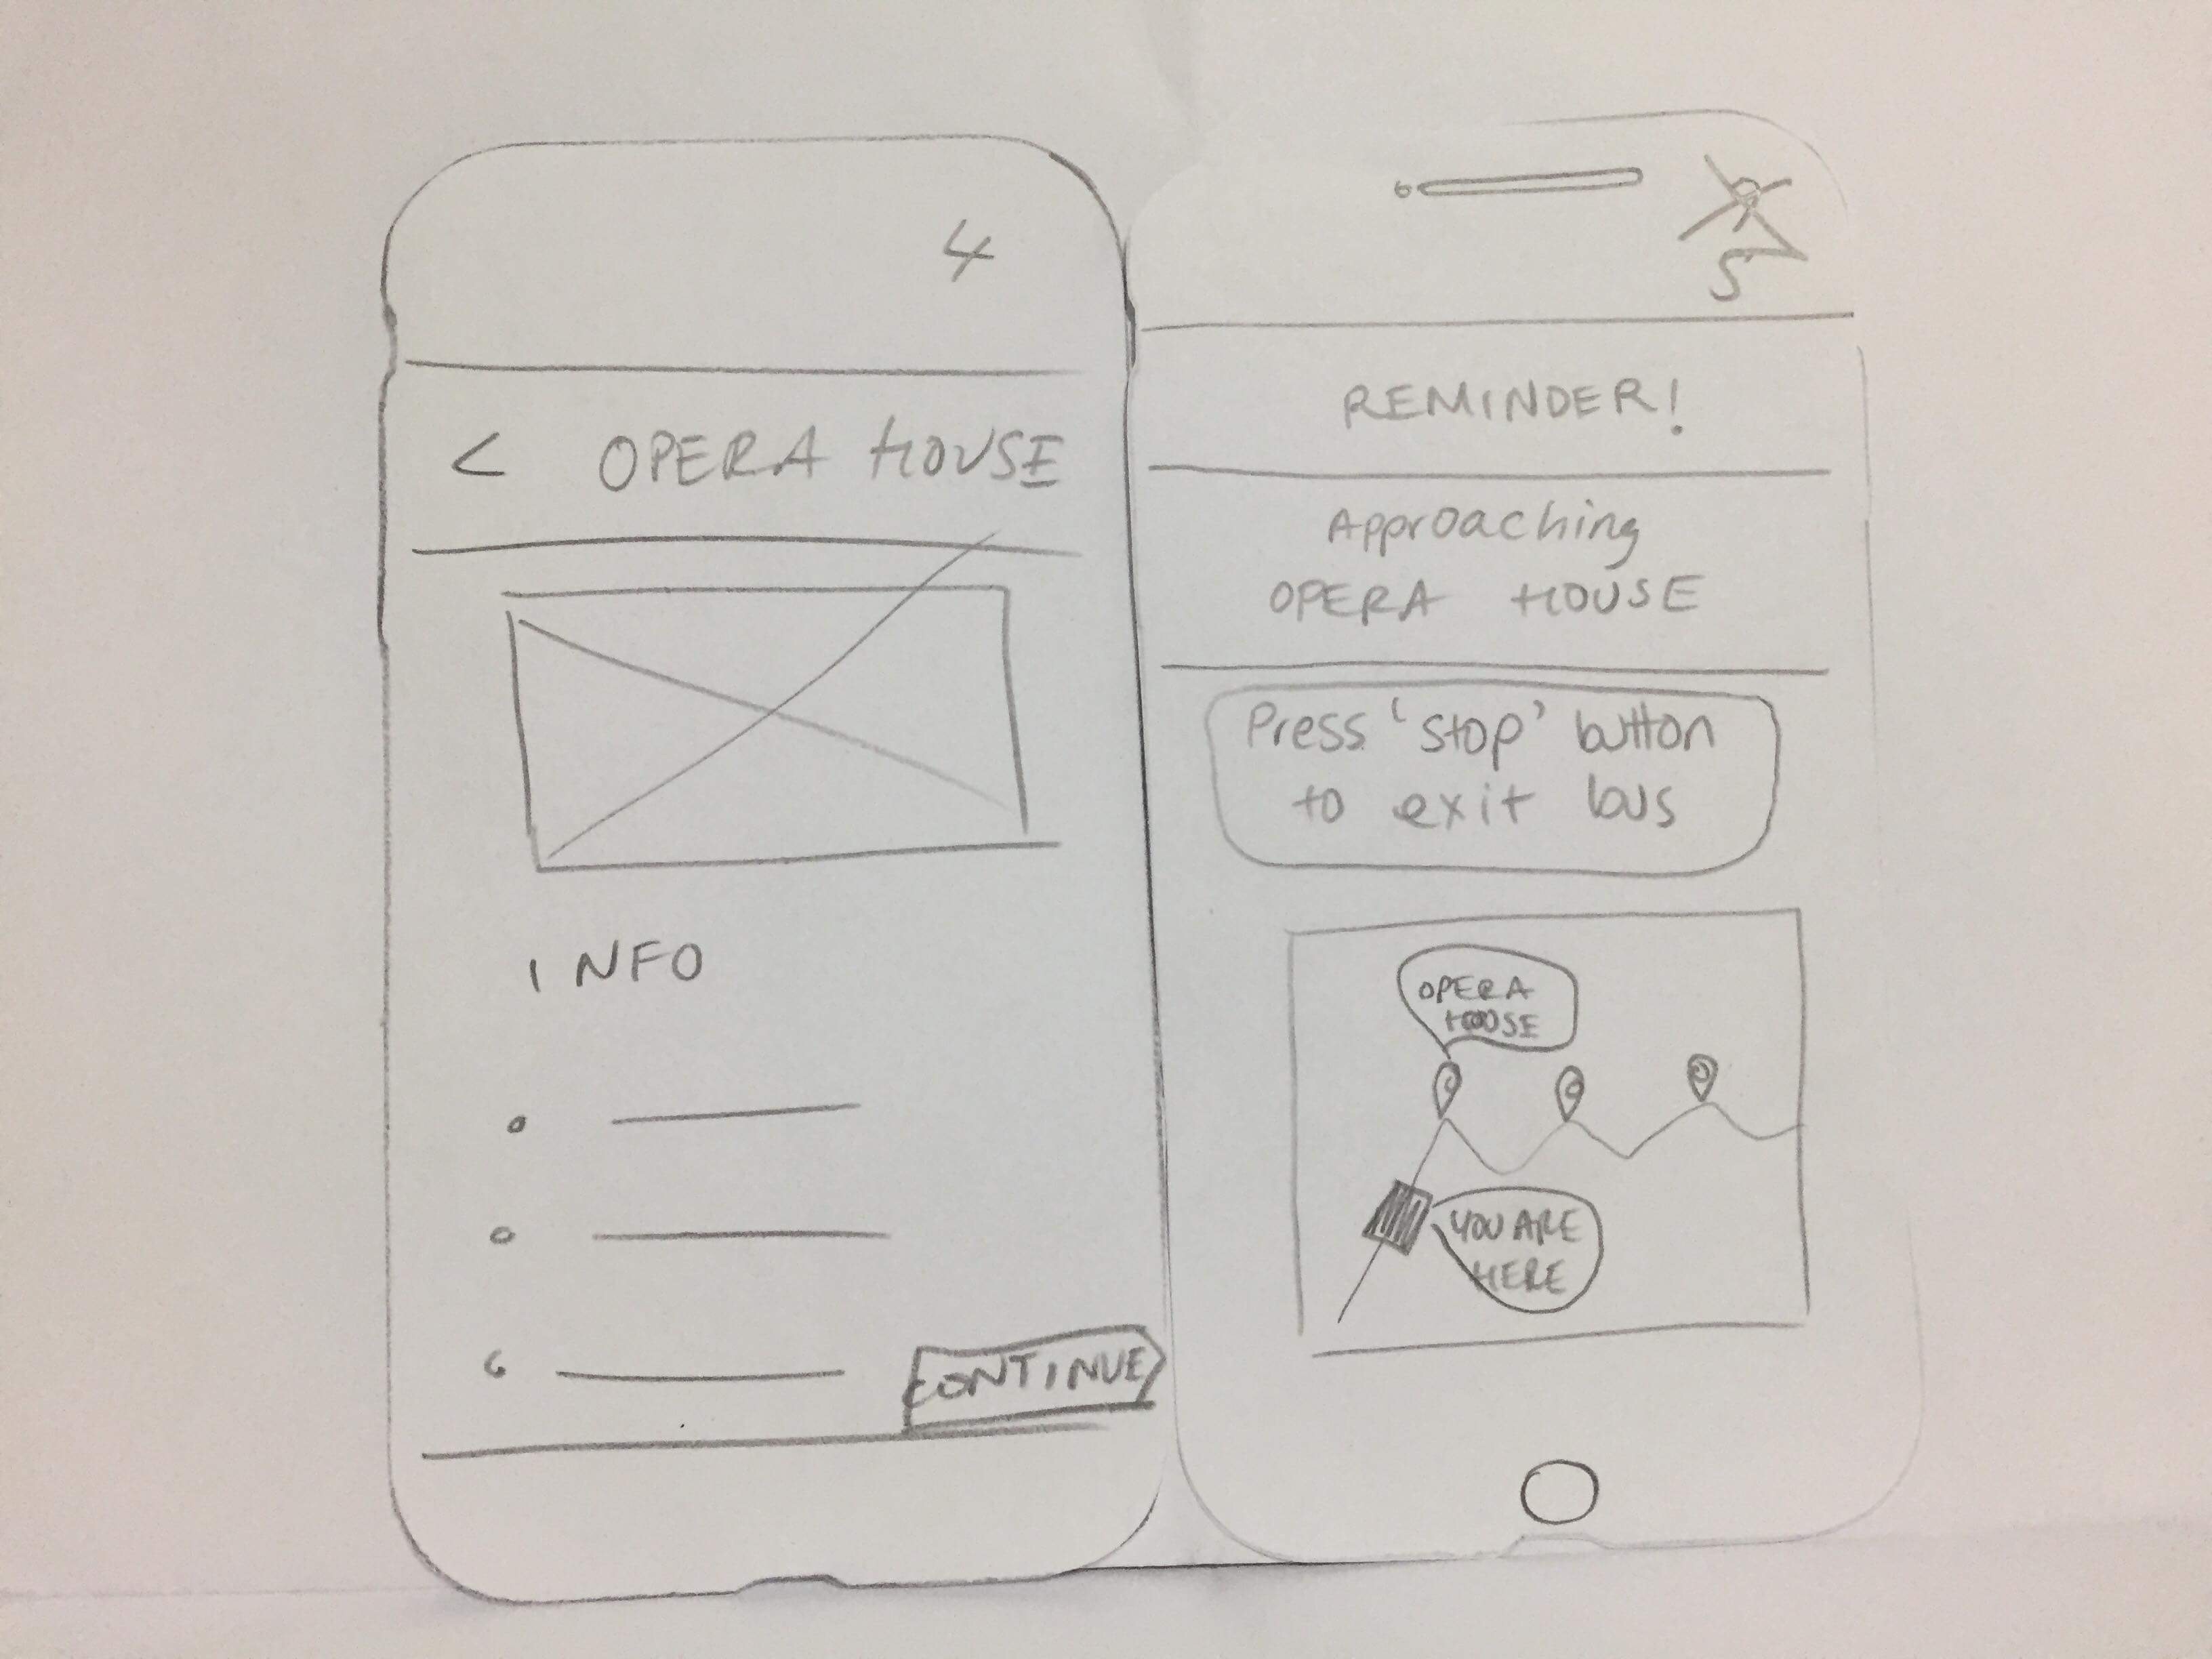 4
< OPERA HOUSE
INFO
CONTINUE
5
REMINDER!
Approaching
OPERA HOUSE
Press 'stop' button
to exit bus
OPERA
HOUSE
YOU ARE
HERE